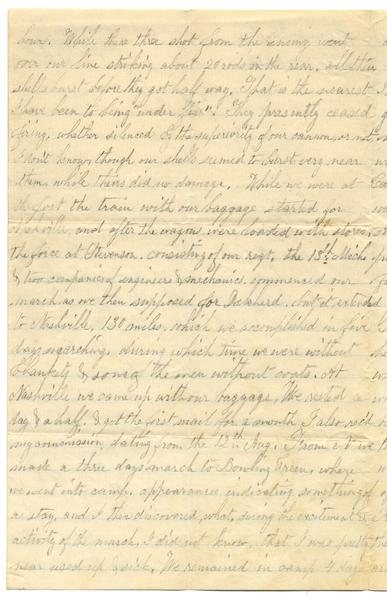 hour. While there three shot from the enemy went
over our line striking about 20 rods in the rear. all other
shells burst before they got half way. That is the nearest
I have been to being "under fire". They presently ceased
firing, whether silenced by the superiority of our cannon, or not,
I don't know, though our shells seemed to burst very near
them, while theirs did no damage. While we were at
the fort the train with our baggage started for
Nashville, and after the wagons were loaded with stores,
the force at Stevenson, consisting of our regt, the 13th Mich.
& two companies of engineers & mechanics commenced our
march, as we then supposed for Decherd, but it extended
to Nashville, 130 miles, which we accomplished in five
days marching, during which time we were without
blankets & some of the men without coats. At
Nashville we came up with our baggage. We rested a
day & a half, & got the first mail for a month. I also rec'd
my commission, dating from the 12th Aug. From N we
made a three days march to Bowling Green, where
we went into camp, appearances indicating something of
a stay, and I then discovered, what, during the excitement &
activity of the march, I did not know, that I was pretty
near used up & sick. We remained in camp 4 days